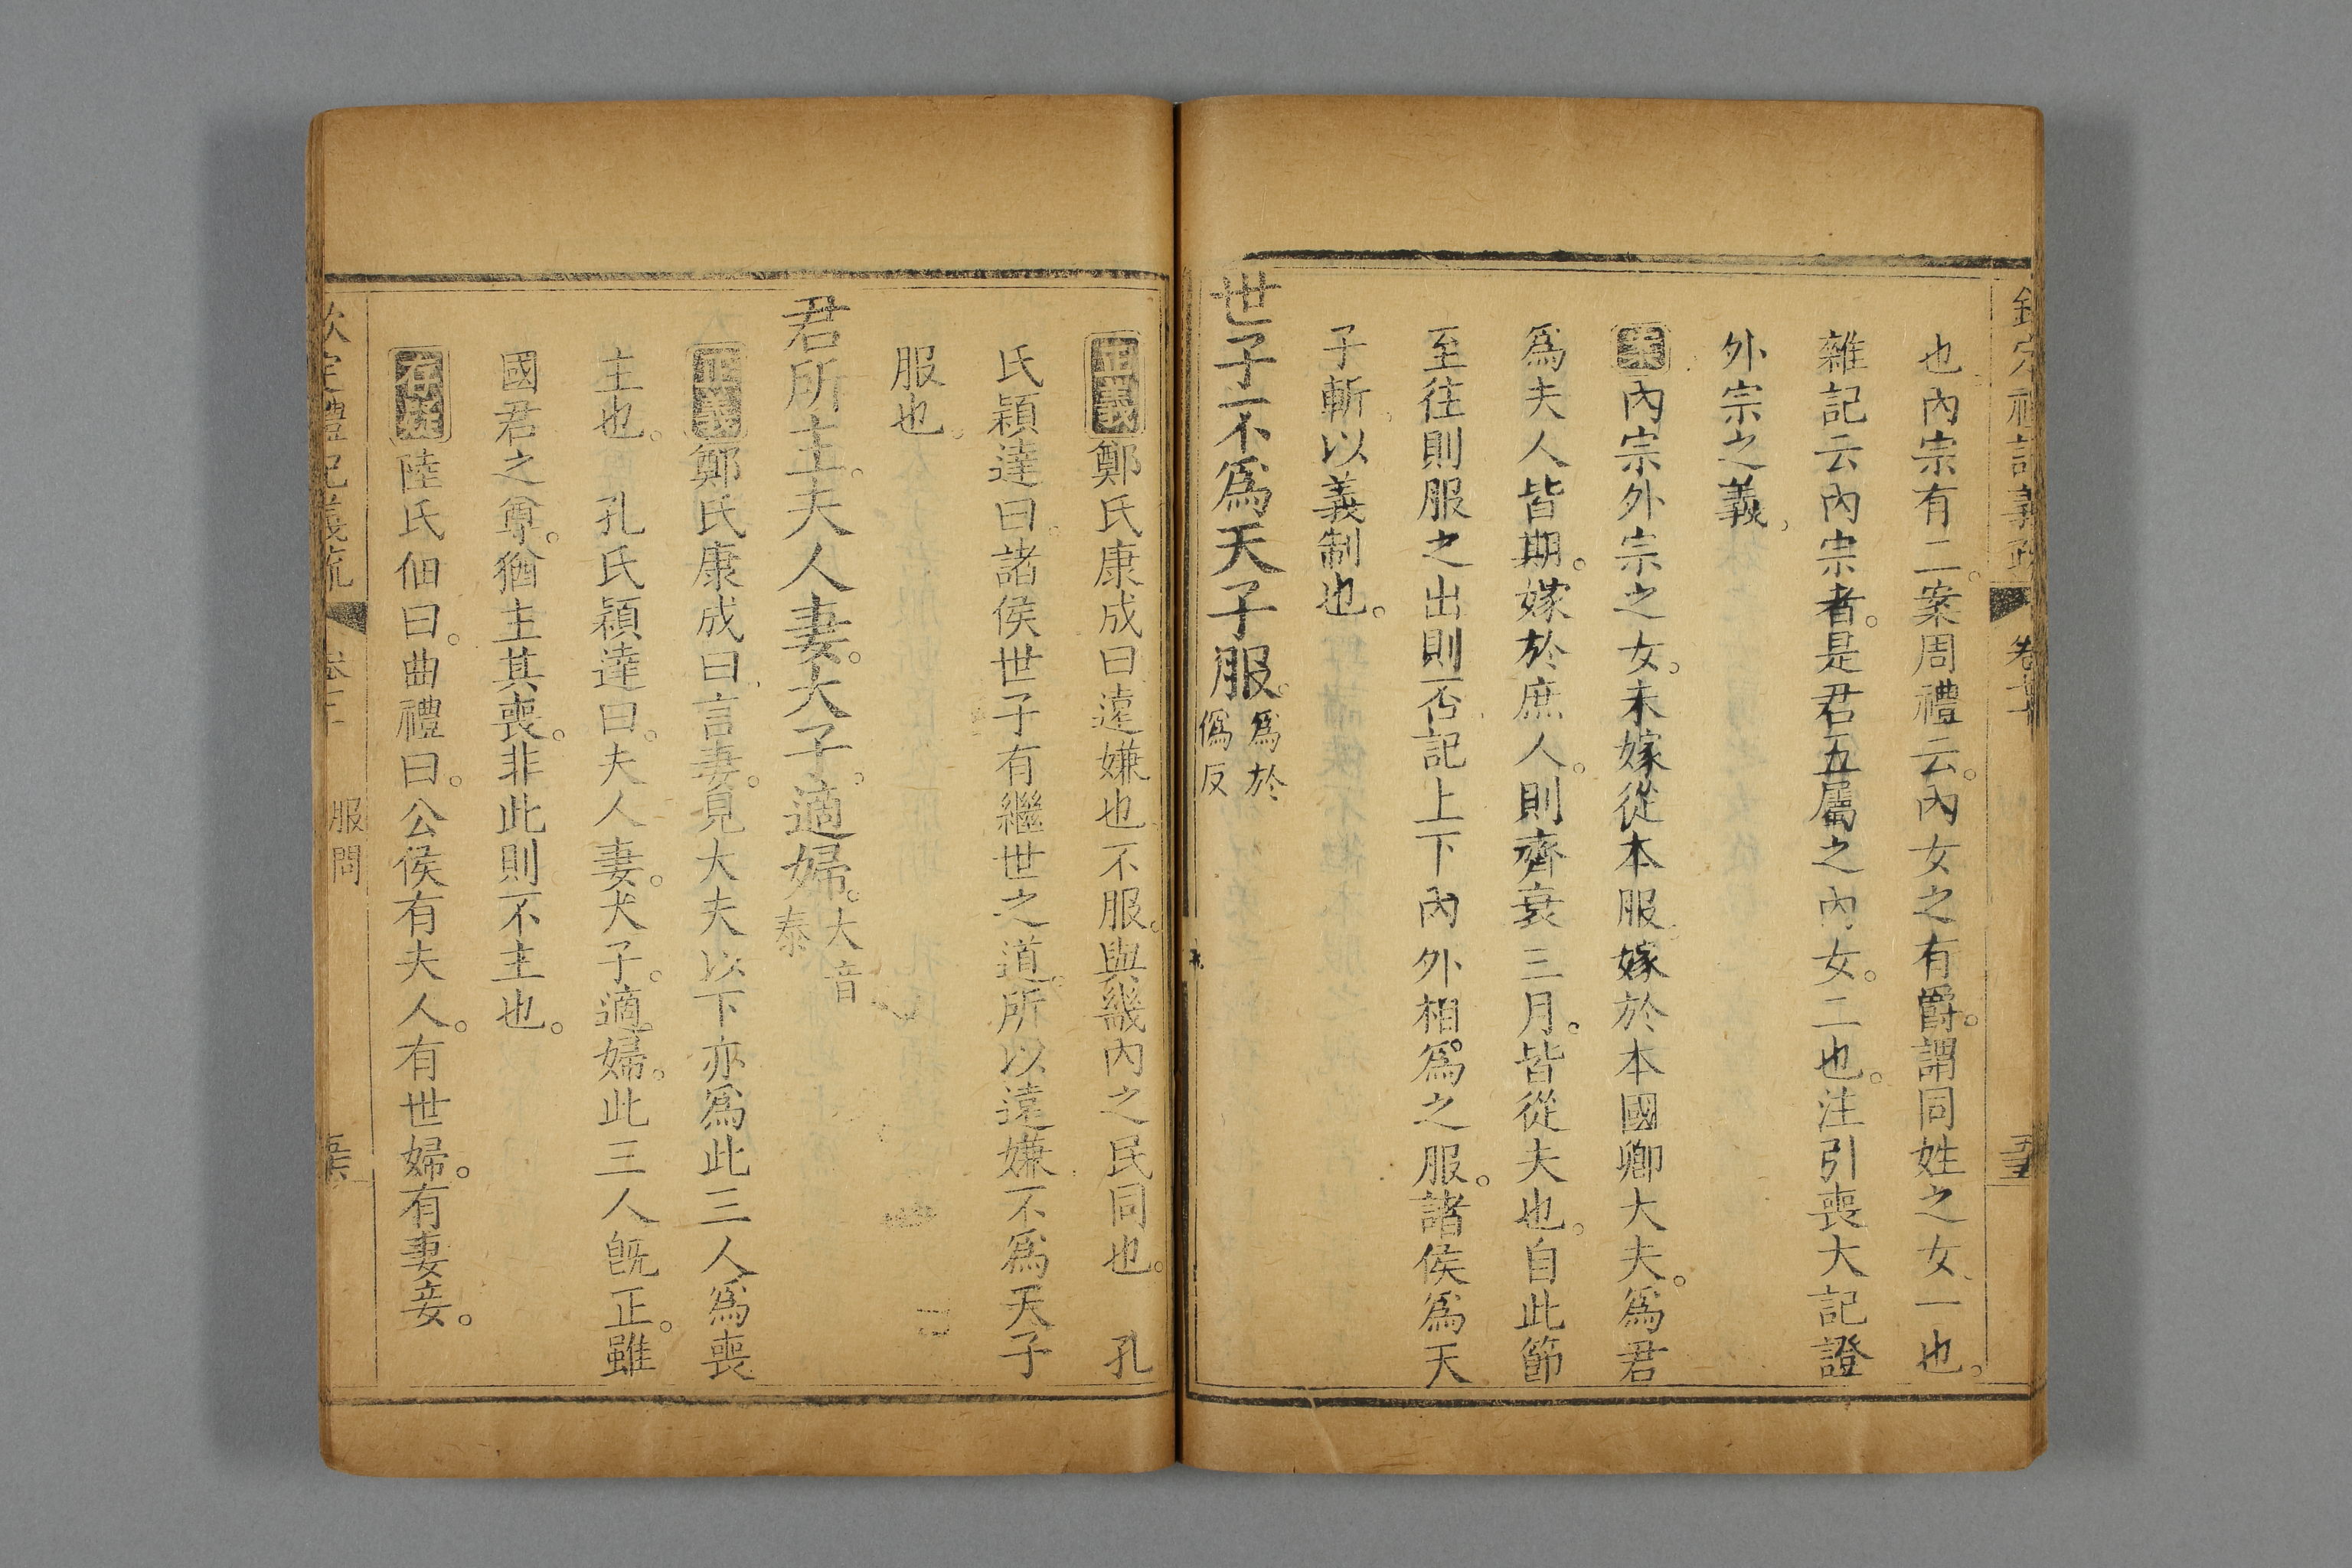 也內宗有二案周禮云內女之有爵謂同姓之女一也
雜記云內宗者是君五屬之內女二也注引喪大記證
外宗之義
案內宗外宗之女未嫁從本服嫁於本國卿大夫為君
為夫人皆期嫁於庶人則齊衰三月皆從夫也自此節
至往則服之出則否記上下內外相為之服諸侯為天
子斬以義制也
世子不為天子服為於偽反
正義鄭氏康成曰遠嫌也不服與畿內之民同也 孔
氏穎達曰諸侯世子有繼世之道所以遠嫌不為天子
服也
君所主夫人妻大子適婦大音泰
正義鄭氏康成曰言妻見大夫以下亦為此三人為喪
主也 孔氏穎達曰夫人妻大子適婦此三人既正雖
國君之尊猶主其喪非此則不主也
存疑陸氏佃曰曲禮曰公侯有夫人有世婦有妻妾
欽定禮記義疏 服問